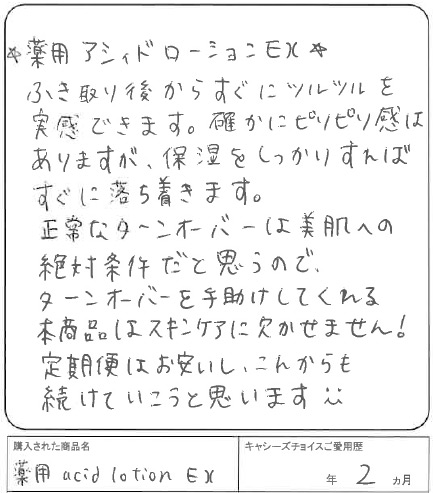 ★薬用 アシィドローションEX★
ふき取り後からすぐにツルツルを
実感できます。確かにピリピリ感は
ありますが、保湿をしっかりすれば
すぐに落ち着きます。
正常なターンオーバーは美肌への
絶対条件だと思うので、
ターンオーバーを手助けしてくれる
本商品はスキンケアに欠かせません!
定期便はお安いし、これからも
続けていこうと思います
購入された商品名
薬用 acid lotion EX
キャシーズチョイスご愛用歴
年 2 ヵ月